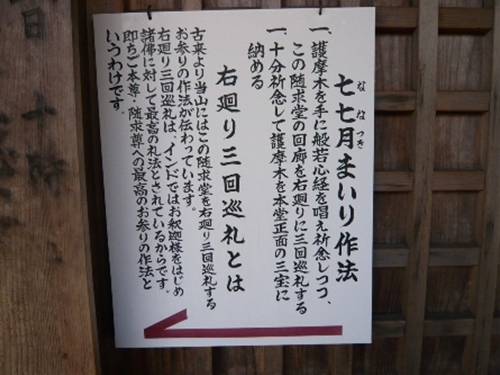 七七月まいり作法
なな
つき
一、護摩木を手に般若心経を唱え祈念しつつ、
この随求堂の回廊を右廻りに三回巡礼する
一、十分祈念して護摩木を本堂正面の三宝に
納める
右廻り三回巡礼とは
古来より当山にはこの随求堂を右廻り三回巡礼する
お参りの作法が伝わっています。
右廻り三回巡礼は、インドではお釈迦様をはじめ
諸佛に対して最高の礼法とされているからです。
即ちご本尊・随求尊への最高のお参りの作法と
いうわけです。